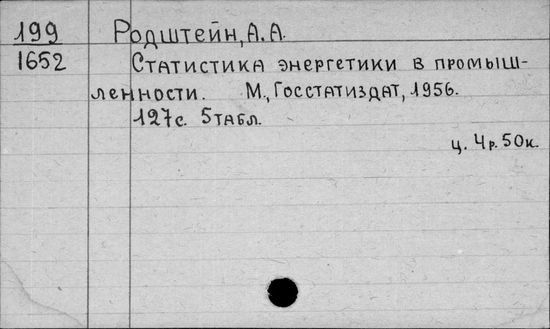 199 Родштейн, А.А.
1652 Статистика энергетики в промыш-
ленности. М., Госстатиздат, 1956.
127с. 5табл.
ц. 4р. 50к.